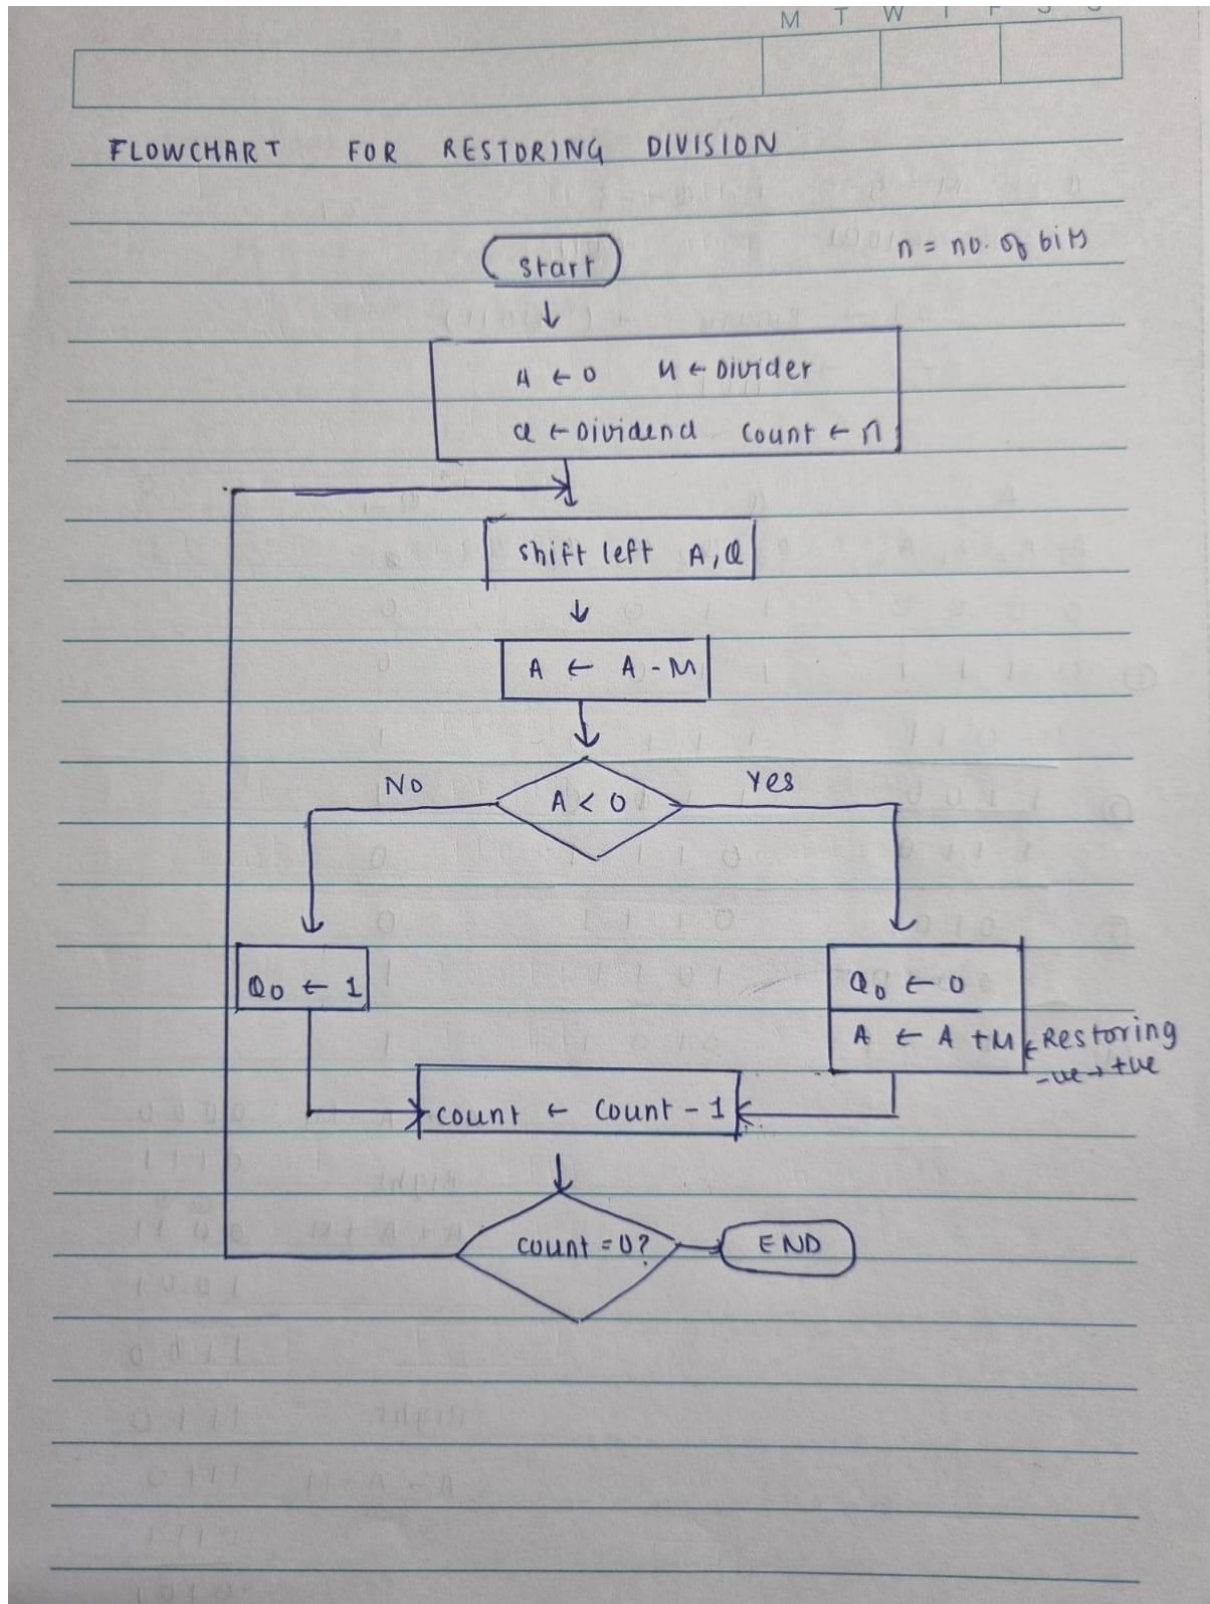 M T W
FLOWCHART FOR RESTORING DIVISION
n = no. of bits
start
A ← 0 M ← Divider
Q ← Dividend count ← n
shift left A, Q
A ← A - M
No
A < 0
Yes
Q0 ← 1
Q0 ← 0
A ← A + M ← Restoring
-ve → +ve
count ← count - 1
count = 0?
END